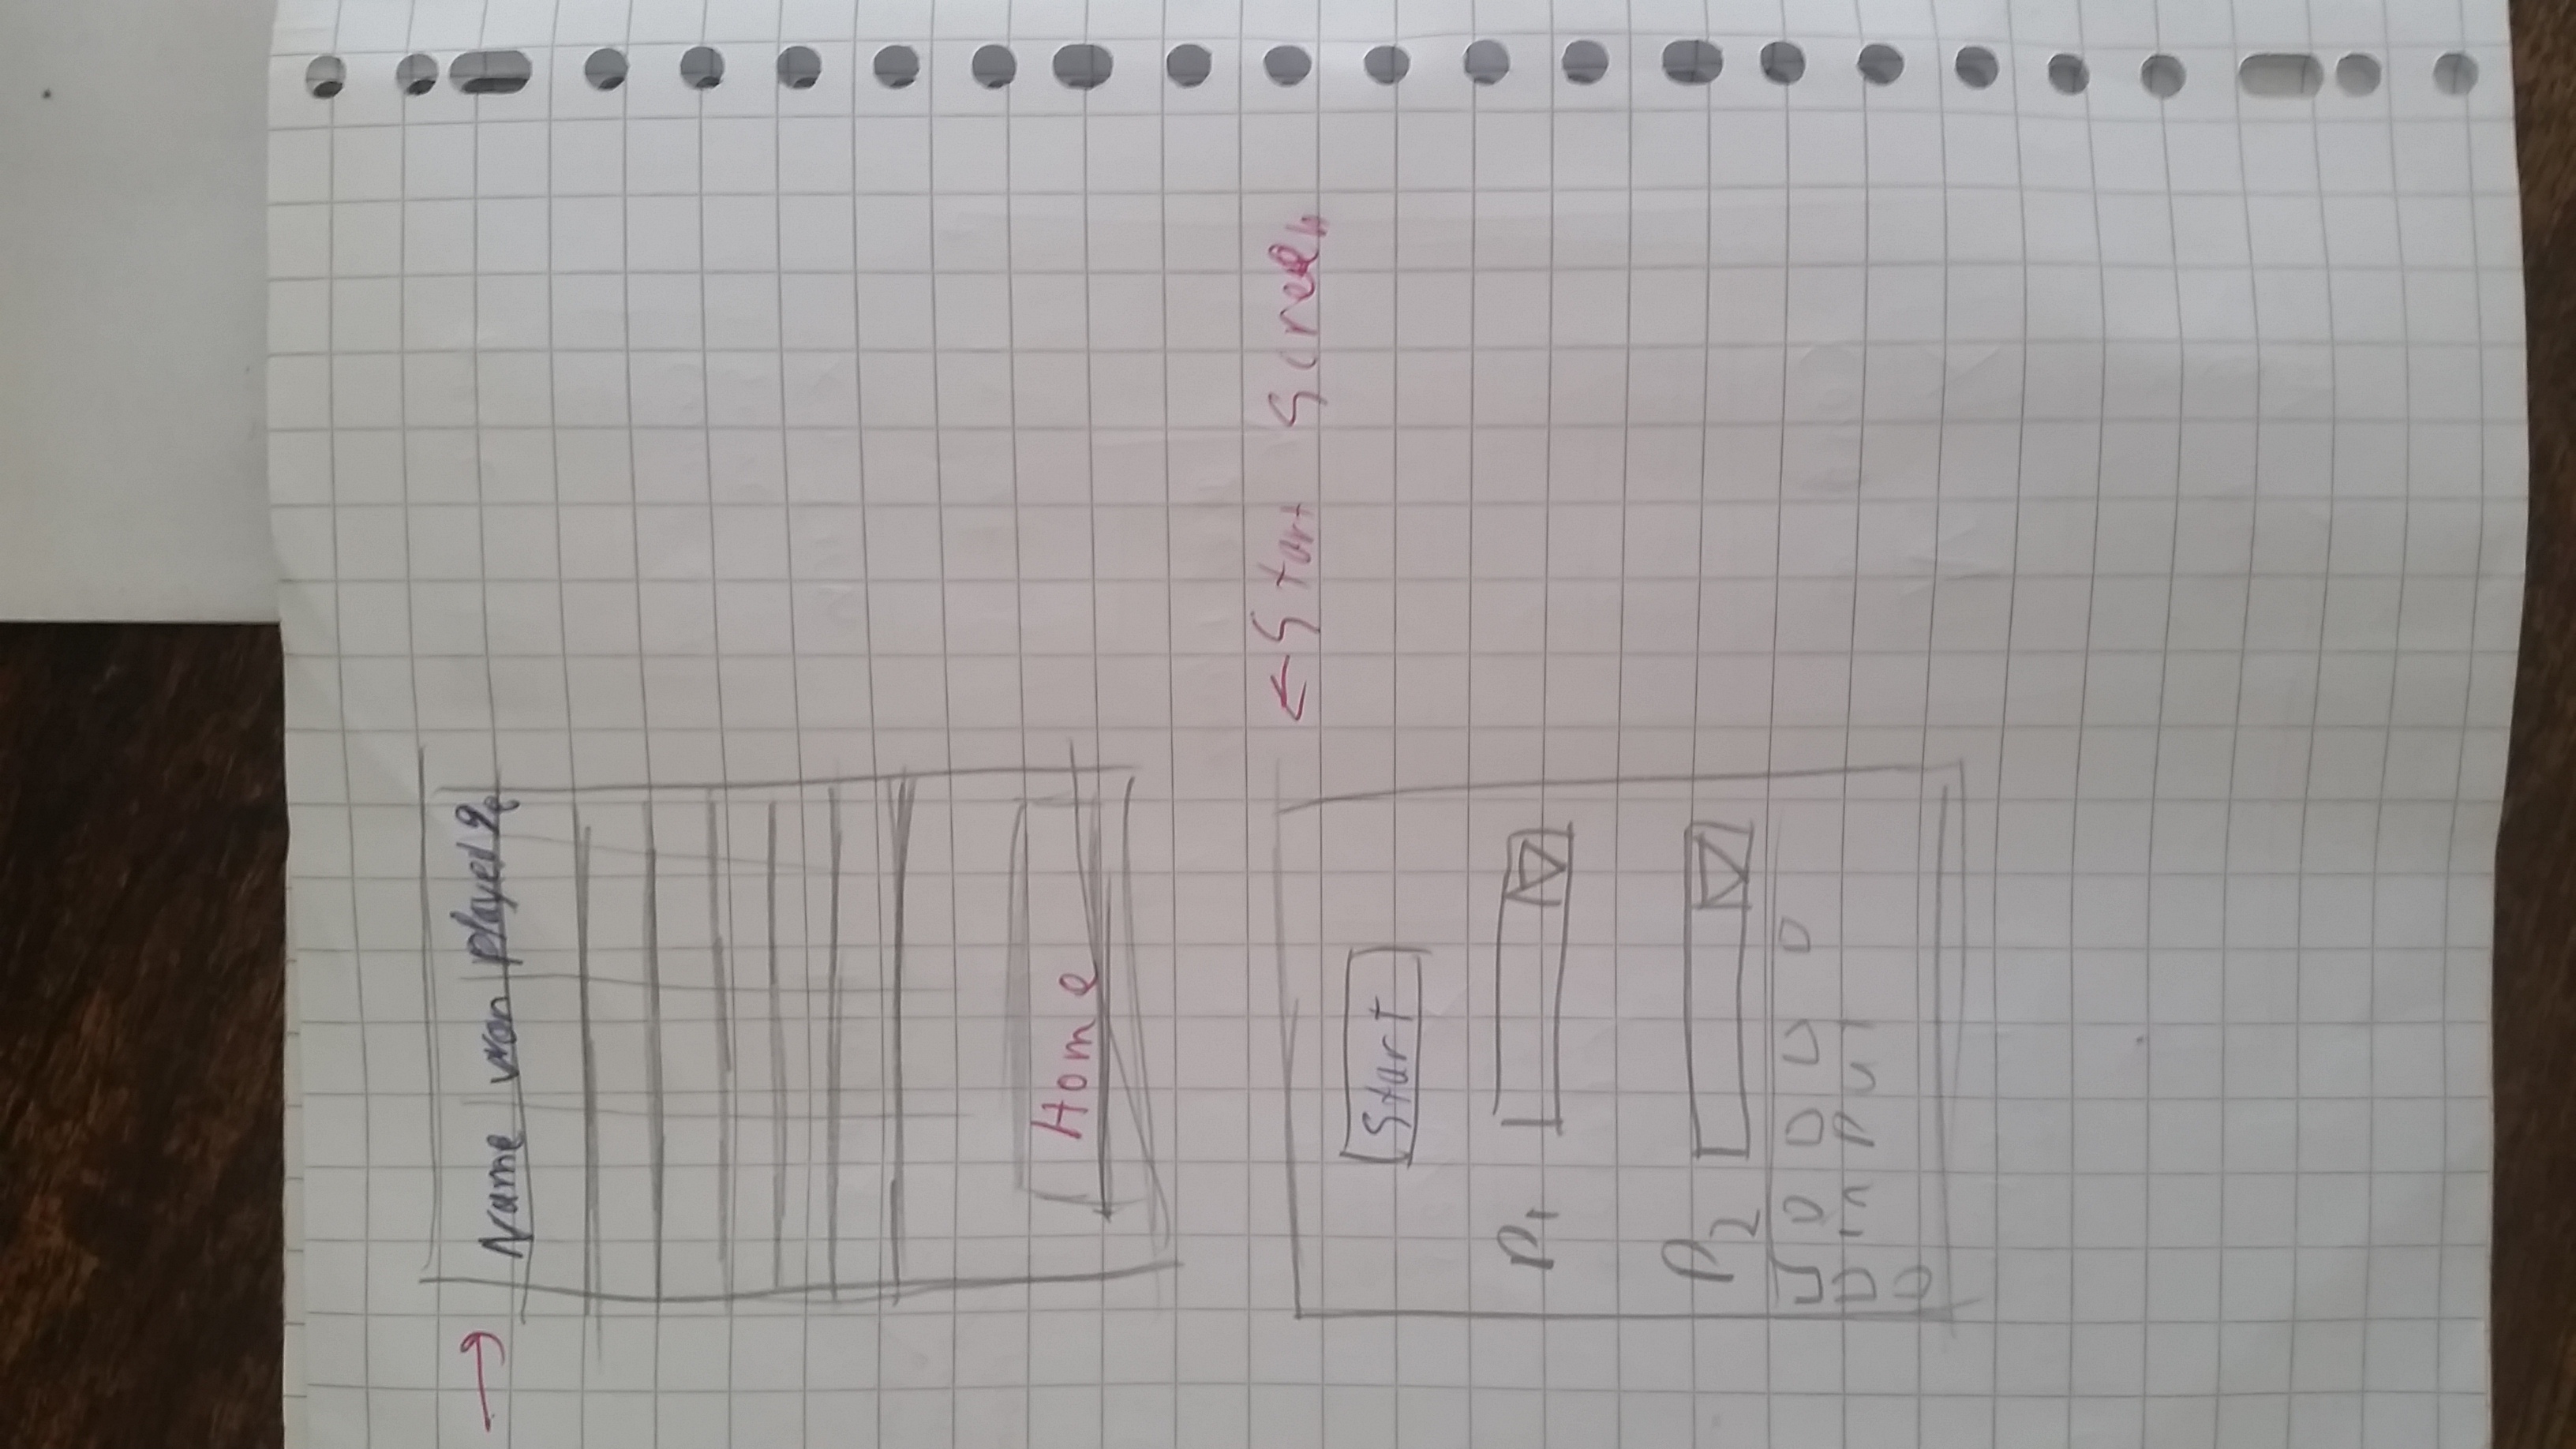 Name won played %
Home
← Start Screen
Start
P1
P2
input